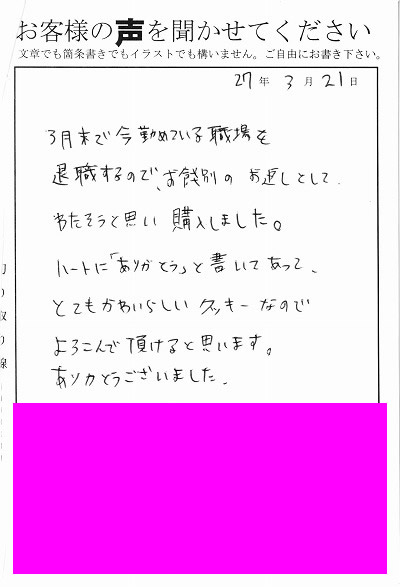 お客様の声を聞かせてください
文章でも箇条書きでもイラストでも構いません。ご自由にお書き下さい。
27年 3月21日
3月末で今勤めている職場を
退職するので、お餞別のお返しとして
わたそうと思い購入しました。
ハートに「ありがとう」と書いてあって、
とてもかわいらしいクッキーなので
よろこんで頂けると思います。
ありがとうございました。
切り取り線